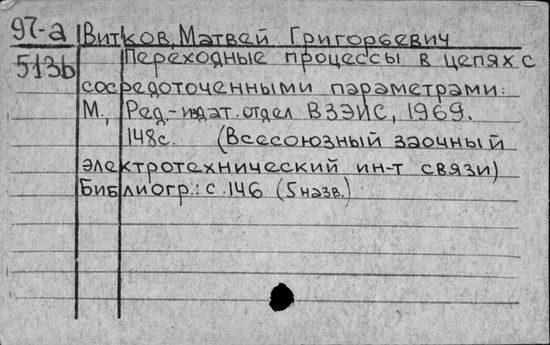 97-а Витков, Матвей Григорьевич
513б Переходные процессы в цепях с
сосредоточенными параметрами.
М., Ред.-издат. отдел ВЗЭИС, 1969.
148с. (Всесоюзный заочный
электротехнический ин-т связи)
Библиогр.: с.146 (5назв.)